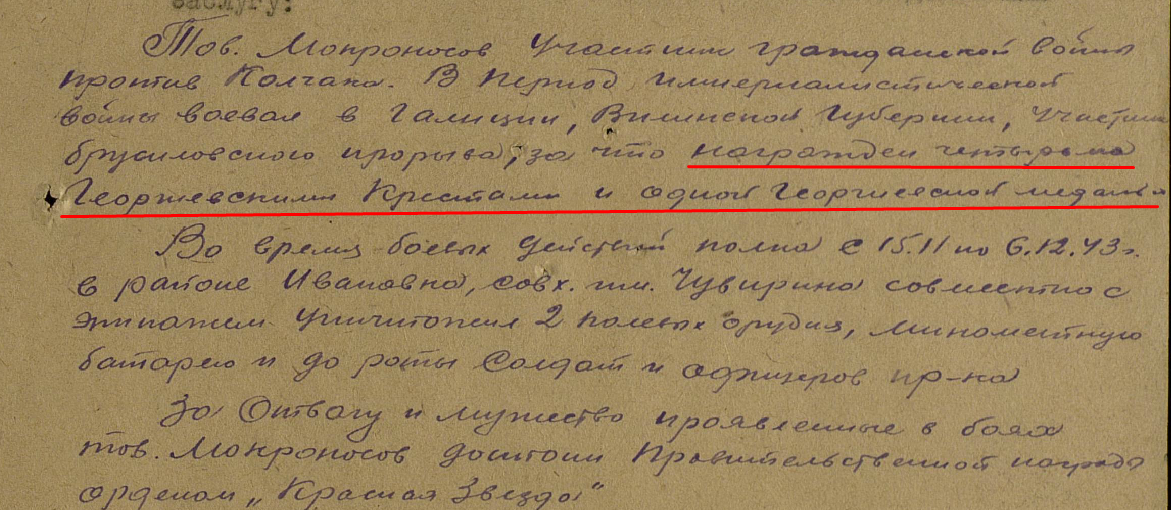 заслугу:
Тов. Мокроносов участник гражданской войны
против Колчака. В период империалистической
войны воевал в Галиции, Виленской губернии, участник
брусиловского прорыва, за что награжден четырьмя
Георгиевскими Крестами и одной Георгиевской медалью
Во время боевых действий полка с 15.11 по 6.12.43 г.
в районе Ивановка, совх. им. Чувирина совместно с
экипажем уничтожил 2 полевых орудия, минометную
батарею и до роты солдат и офицеров пр-ка
За Отвагу и мужество проявленные в боях
тов. Мокроносов достоин Правительственной награды
орденом „Красная Звезда"